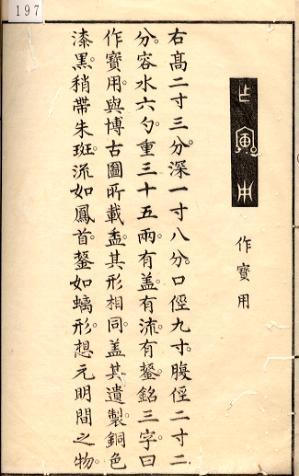 197
作寶用
右髙二寸三分。深一寸八分。口俓九寸。腹俓二寸二
分。容水六勺。重三十五兩。有盖。有流。有鋬。銘三字曰
作寶用。與博古圖所載盉。其形相同。盖其遺製。銅色
漆黑。稍帶朱斑。流如鳳首。鋬如螭形。想元明間之物。